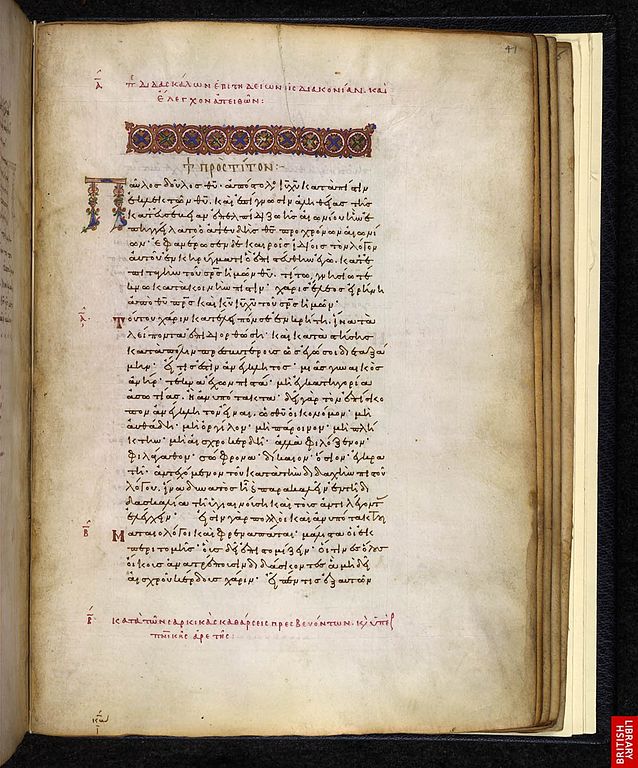 41
ᾱ π̅ διδασκάλων ἐπιτηδείων εἰς διακονίαν. καὶ
ἔλεγχον ἀπειθῶν:
+ πρὸς τίτον:-
Παῦλος δοῦλος θ̅υ̅· ἀπόστολος ι̅υ̅ χ̅υ̅ κατὰ πίστιν
ἐκλεκτῶν θ̅υ̅. καὶ ἐπίγνωσιν ἀληθείας τῆς
κατ' εὐσέβειαν ἐπ' ἐλπίδι ζωῆς αἰωνίου ἣν ἐ
πηγγείλατο ὁ ἀψευδὴς θ̅ς̅ πρὸ χρόνων αἰωνί
ων· ἐφανέρωσεν δὲ καιροῖς ἰδίοις τὸν λόγον
αὐτοῦ ἐν κηρύγματι ὃ ἐπιστεύθην ἐγὼ. κατ' ἐ
πιταγὴν τοῦ σ̅ρ̅ς̅ ἡμῶν θ̅υ̅. τίτω γνησίω τέ
κνω κατὰ κοινὴν πίστιν· χάρις ἔλεος εἰρήνη
ἀπὸ θ̅υ̅ π̅ρ̅ς̅ καὶ κ̅υ̅ ι̅υ̅ χ̅υ̅ τοῦ σ̅ρ̅ς̅ ἡμῶν·
ᾱ Τούτου χάριν κατέλιπόν σε ἐν κρήτη. ἵνα τὰ
λείποντα ἐπιδιορθώση· καὶ καταστήσης
κατὰ πόλιν πρεσβυτέρους ὡς ἐγώ σοι διεταξά
μην· εἴ τις ἐστὶν ἀνέγκλητος· μιᾶς γυναικὸς
ἀνήρ· τέκνα ἔχων πιστά· μὴ ἐν κατηγορία
ἀσωτίας. ἢ ἀνυπότακτα· δεῖ γὰρ τὸν ἐπίσκο
πον ἀνέγκλητον εἶναι. ὡς θ̅υ̅ οἰκονόμον· μὴ
αὐθάδη· μὴ ὀργίλον· μὴ πάροινον· μὴ πλή
κτην· μὴ αἰσχροκερδῆ· ἀλλὰ φιλόξενον·
φιλάγαθον· σώφρονα· δίκαιον· ὅσιον ἐγκρα
τῆ· ἀντεχόμενον τοῦ κατὰ τὴν διδαχὴν πιστοῦ
λόγου. ἵνα δυνατὸς ἦ καὶ παρακαλεῖν ἐν τῆ δι
δασκαλία τῆ ὑγιαινούση καὶ τοὺς ἀντιλέγοντ
ἐλέγχειν· εἰσὶν γὰρ πολλοὶ καὶ ἀνυπότακτοι
β̅ Ματαιολόγοι καὶ φρεναπάται· μάλιστα οἱ ἐκ
περιτομῆς· οὓς δεῖ ἐπιστομίζειν· οἵτινες ὅλους
οἴκους ἀνατρέπουσιν διδάσκοντες ἃ μὴ δεῖ
αἰσχροῦ κέρδους χάριν· εἶπέν τις ἐξ αὐτῶν
β̅ κατὰ τῶν σαρκικὰς καθάρσεις πρεσβευόντων. κ(αὶ) ὑπὲρ
π̅ν̅ικῆς ἀρετῆς:
LIBRARY
BRITISH